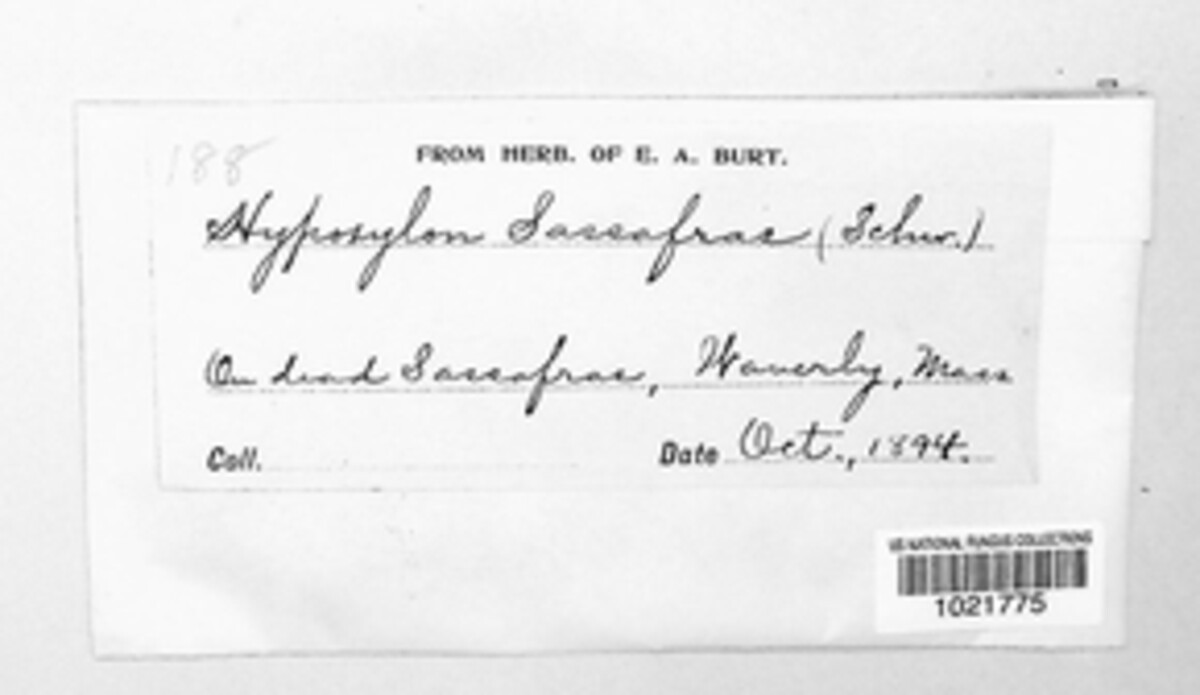 188
FROM HERB. OF E. A. BURT.
Hypoxylon Sassafras (Schw.)
On dead Sassafras, Waverly, Mass
Coll. Date Oct., 1894.
US NATIONAL FUNGUS COLLECTIONS
1021775